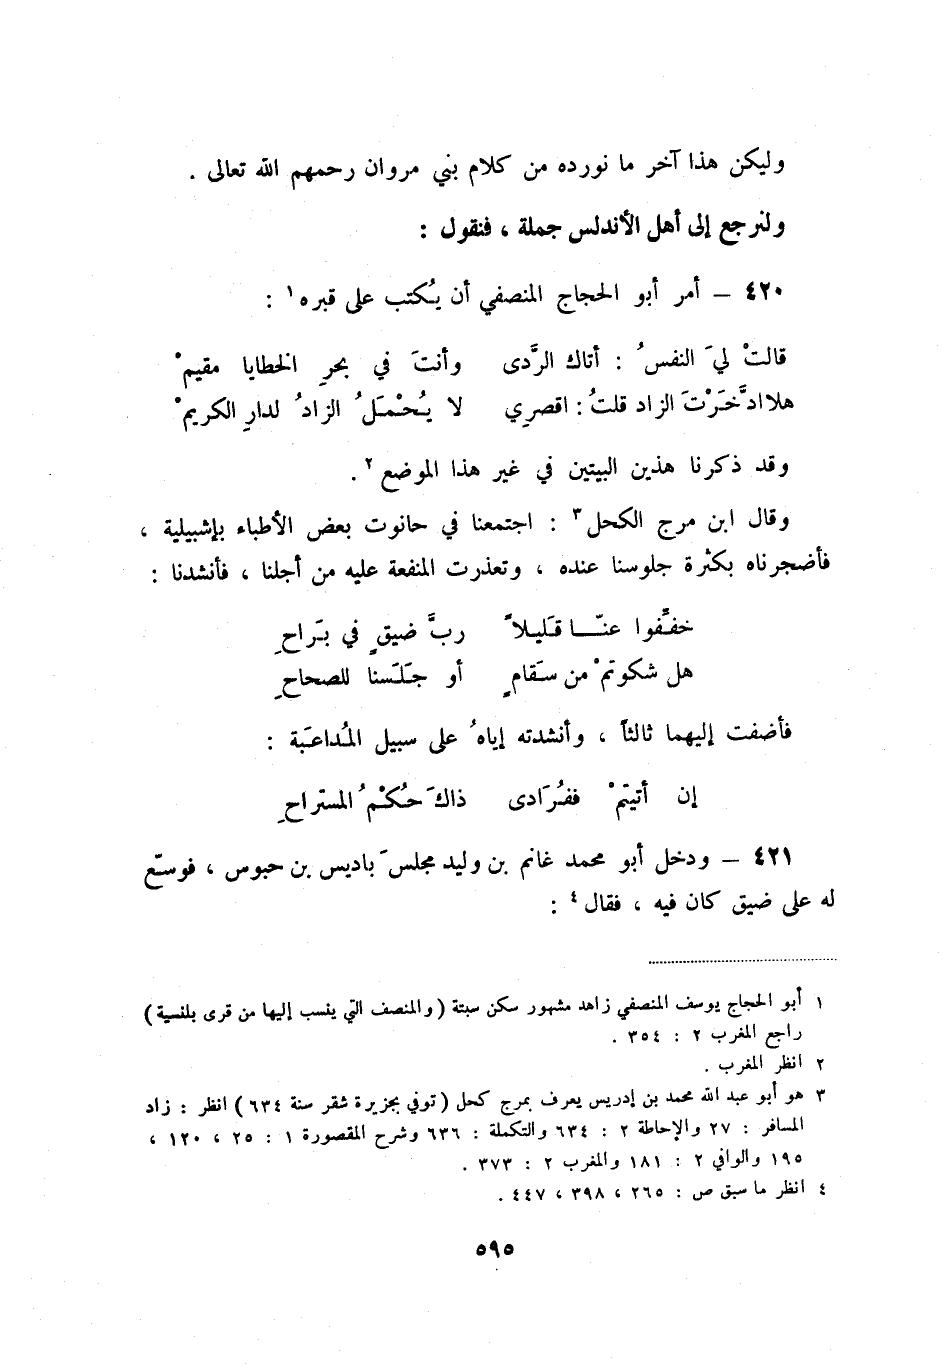 وليكن هذا آخر ما نورده من كلام بني مروان رحمهم الله تعالى .
ولنرجع إلى أهل الأندلس جملة ، فنقول :
٤٢٠ – أمر أبو الحجاج المنصفي أن يُكتب على قبره١ :
قالتْ ليَ النفسُ : أتاك الرَّدى وأنتَ في بحرِ الخطايا مقيمْ
هلا ادَّخَرْتَ الزاد قلتُ : اقصرِي لا يُحْمَلُ الزادُ لدارِ الكريمْ
وقد ذكرنا هذين البيتين في غير هذا الموضع٢ .
وقال ابن مرج الكحل٣ : اجتمعنا في حانوت بعض الأطباء بإشبيلية ،
فأضجرناه بكثرة جلوسنا عنده ، وتعذرت المنفعة عليه من أجلنا ، فأنشدنا :
خفّفوا عنّا قَليلاً ربَّ ضيقٍ في بَراحِ
هل شكوتمْ من سَقامٍ أو جَلَسنا للصحاحِ
فأضفت إليهما ثالثاً ، وأنشدته إياهُ على سبيل المُداعَبة :
إن أتيتمْ ففُرَادى ذاكَ حُكْمُ المستراحِ
٤٢١ – ودخل أبو محمد غانم بن وليد مجلسَ باديس بن حبوس ، فوسّع
له على ضيق كان فيه ، فقال٤ :
١ أبو الحجاج يوسف المنصفي زاهد مشهور سكن سبتة (والمنصف التي ينسب إليها من قرى بلنسية)
راجع المغرب ٢ : ٣٥٤ .
٢ انظر المغرب .
٣ هو أبو عبد الله محمد بن إدريس يعرف بمرج كحل (توفي بجزيرة شقر سنة ٦٣٤) انظر : زاد
المسافر : ٢٧ والإحاطة ٢ : ٦٣٤ والتكملة : ٦٣٦ وشرح المقصورة ١ : ٢٥ ، ١٢٠ ،
١٩٥ والوافي ٢ : ١٨١ والمغرب ٢ : ٣٧٣ .
٤ انظر ما سبق ص : ٢٦٥ ، ٣٩٨ ، ٤٤٧ .
٥٩٥